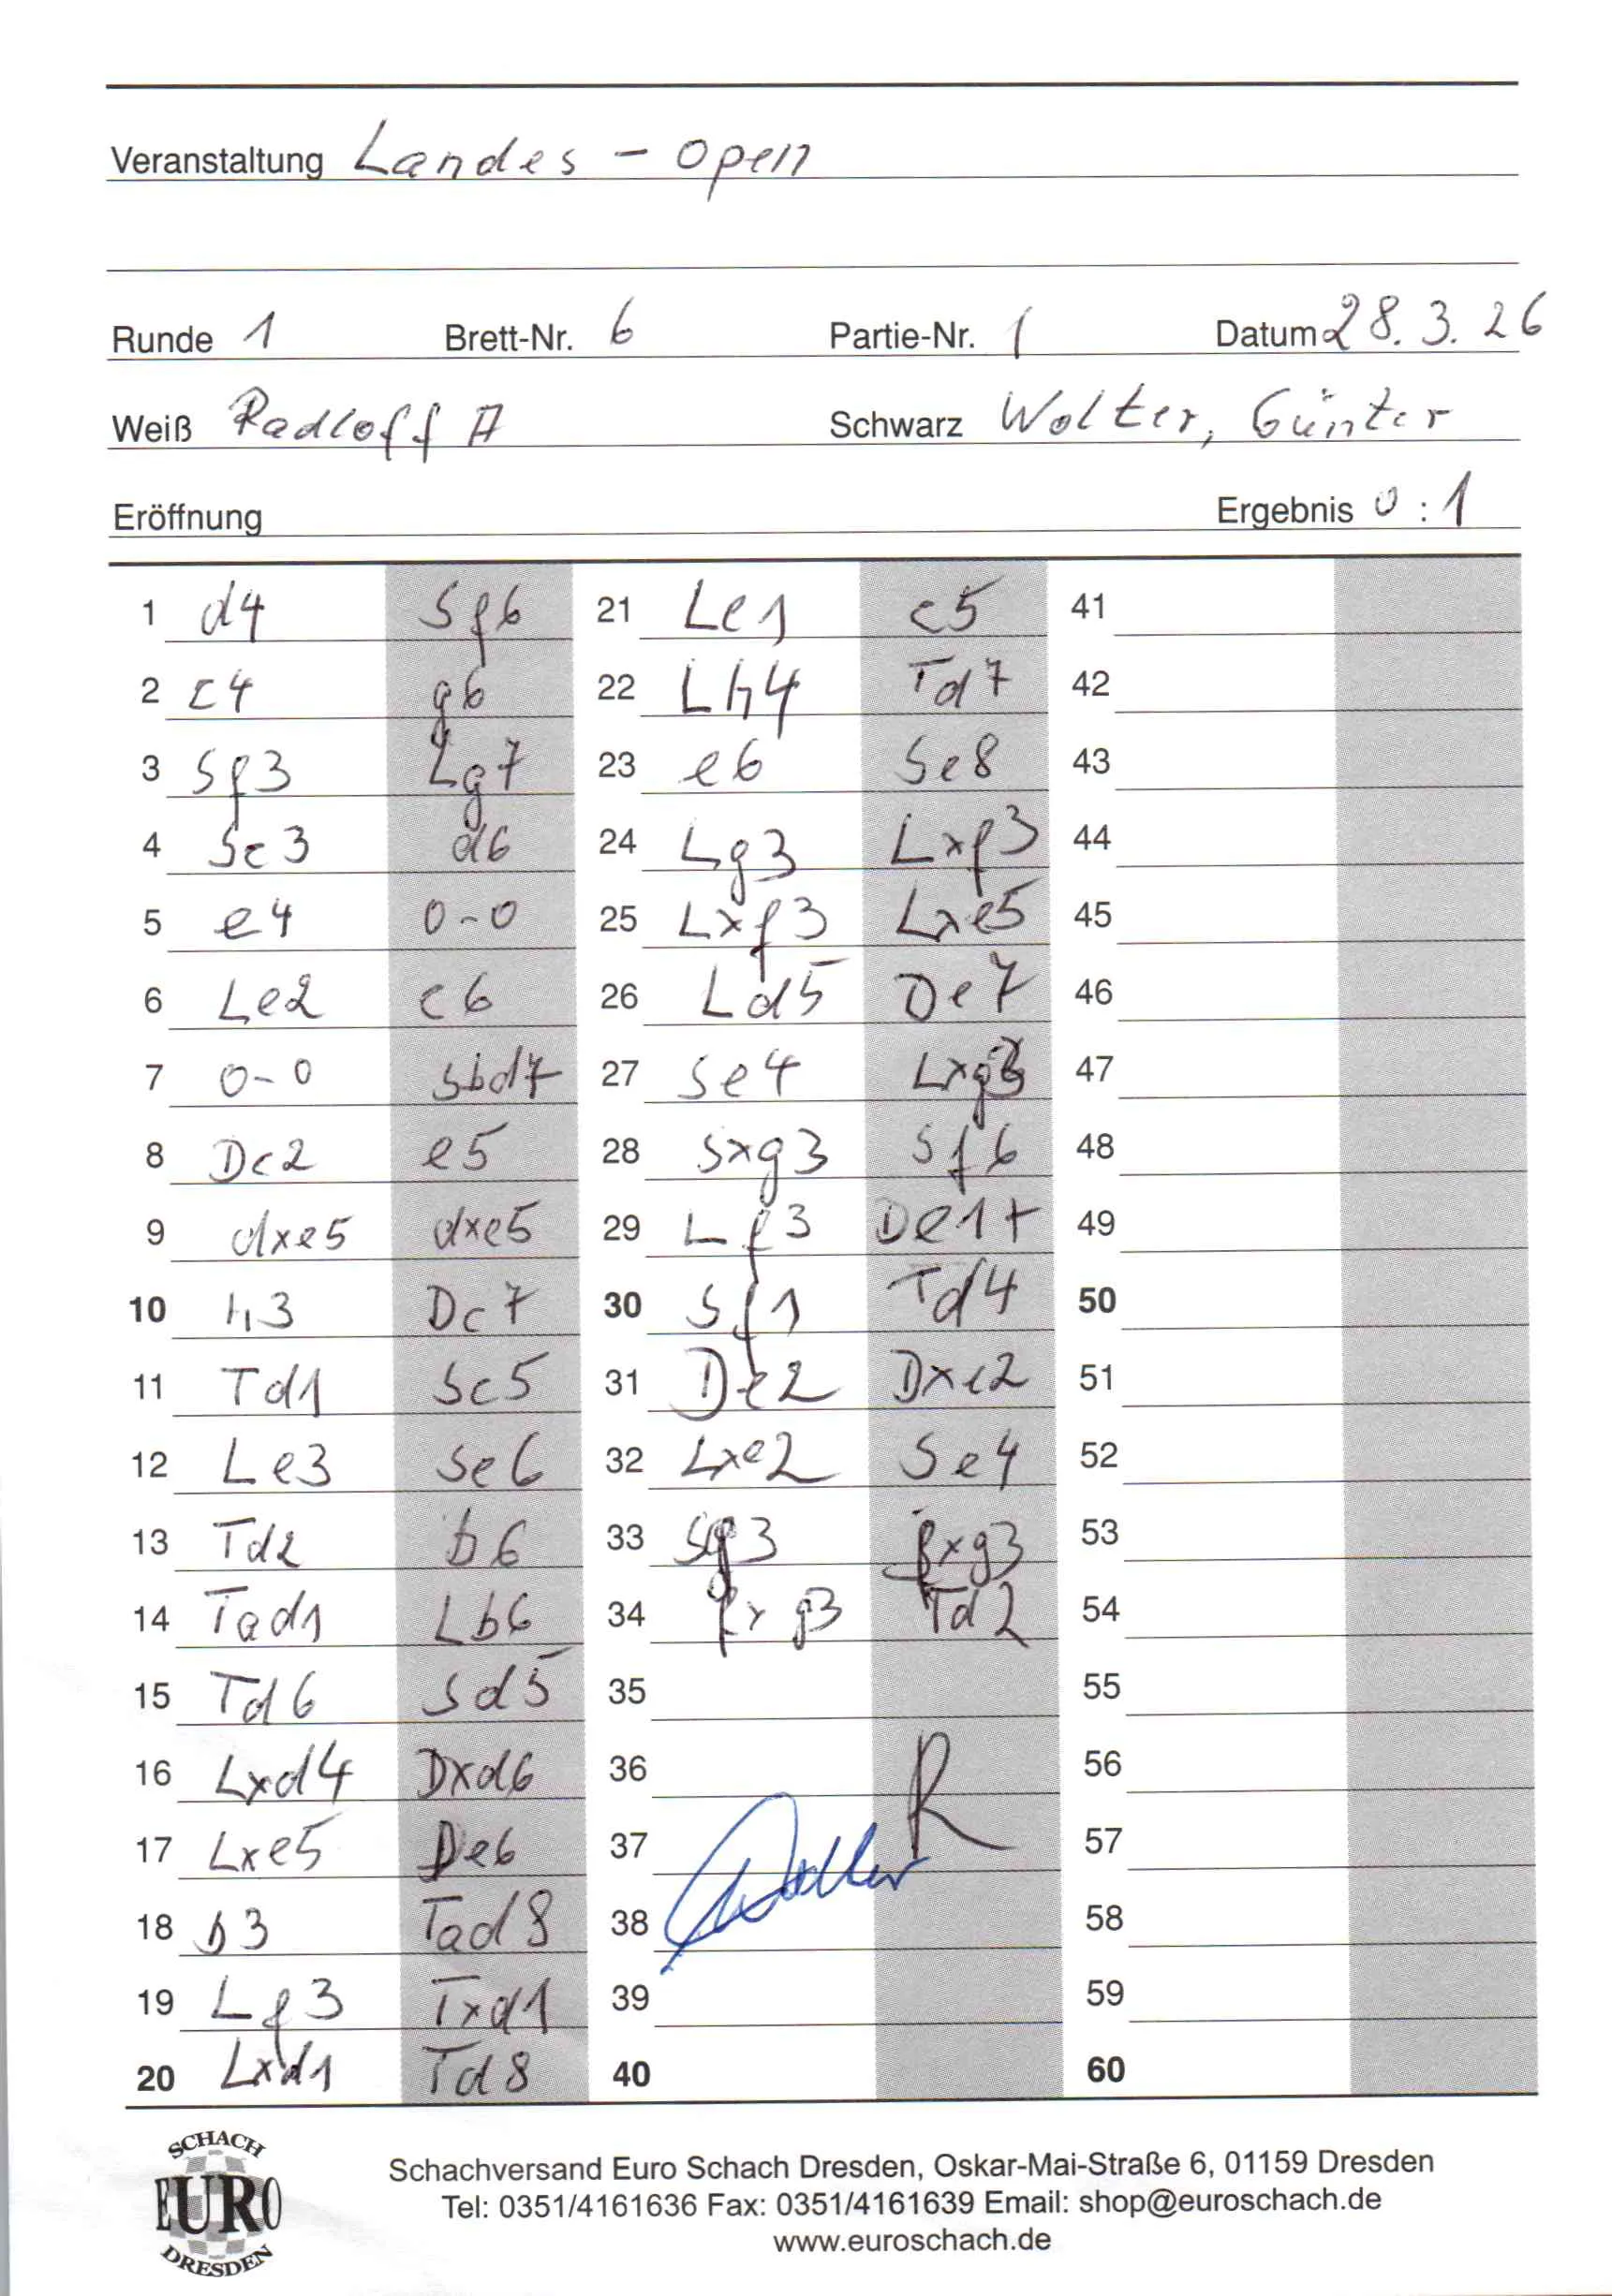 Veranstaltung Landes - Open
Runde 1 Brett-Nr. 6 Partie-Nr. 1 Datum 28.3.26
Weiß Radloff A Schwarz Wolter, Günter
Eröffnung Ergebnis 0 : 1
1 d4 Sf6 21 Le1 c5 41
2 c4 g6 22 Lh4 Td7 42
3 Sf3 Lg7 23 e6 Se8 43
4 Sc3 d6 24 Lg3 Lxf3 44
5 e4 0-0 25 Lxf3 Lxe5 45
6 Le2 c6 26 Ld5 De7 46
7 0-0 Sbd7 27 Se4 Lxg3 47
8 Dc2 e5 28 Sxg3 Sf6 48
9 dxe5 dxe5 29 Lf3 De1+ 49
10 h3 Dc7 30 Sf1 Td4 50
11 Td1 Sc5 31 De2 Dxe2 51
12 Le3 Se6 32 Lxe2 Se4 52
13 Td2 b6 33 Sg3 fxg3 53
14 Tad1 Lb6 34 fxg3 Td2 54
15 Td6 Sd5 35 55
16 Lxd4 Dxd6 36 R 56
17 Lxe5 De6 37 Wolter 57
18 b3 Tad8 38 58
19 Lf3 Txd1 39 59
20 Lxd1 Td8 40 60
SCHACH
EURO
DRESDEN
Schachversand Euro Schach Dresden, Oskar-Mai-Straße 6, 01159 Dresden
Tel: 0351/4161636 Fax: 0351/4161639 Email: shop@euroschach.de
www.euroschach.de